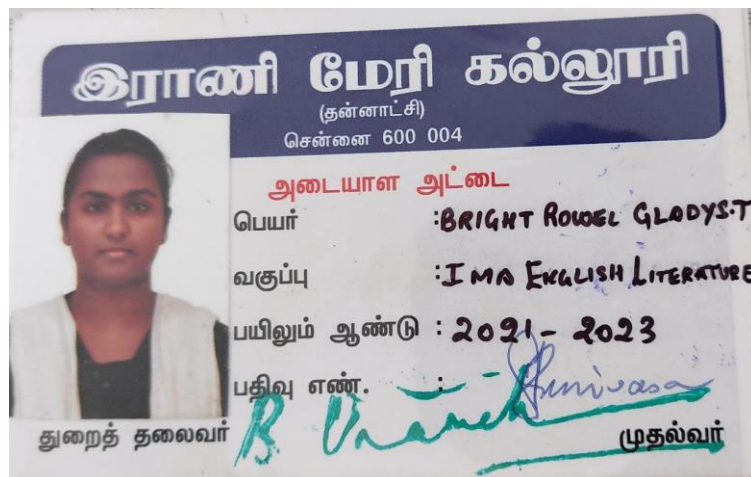 இராணி மேரி கல்லூரி
(தன்னாட்சி)
சென்னை 600 004
அடையாள அட்டை
பெயர் : BRIGHT ROWEL GLADYS.T
வகுப்பு : I MA ENGLISH LITERATURE
பயிலும் ஆண்டு : 2021 - 2023
பதிவு எண். :
துறைத் தலைவர் முதல்வர்